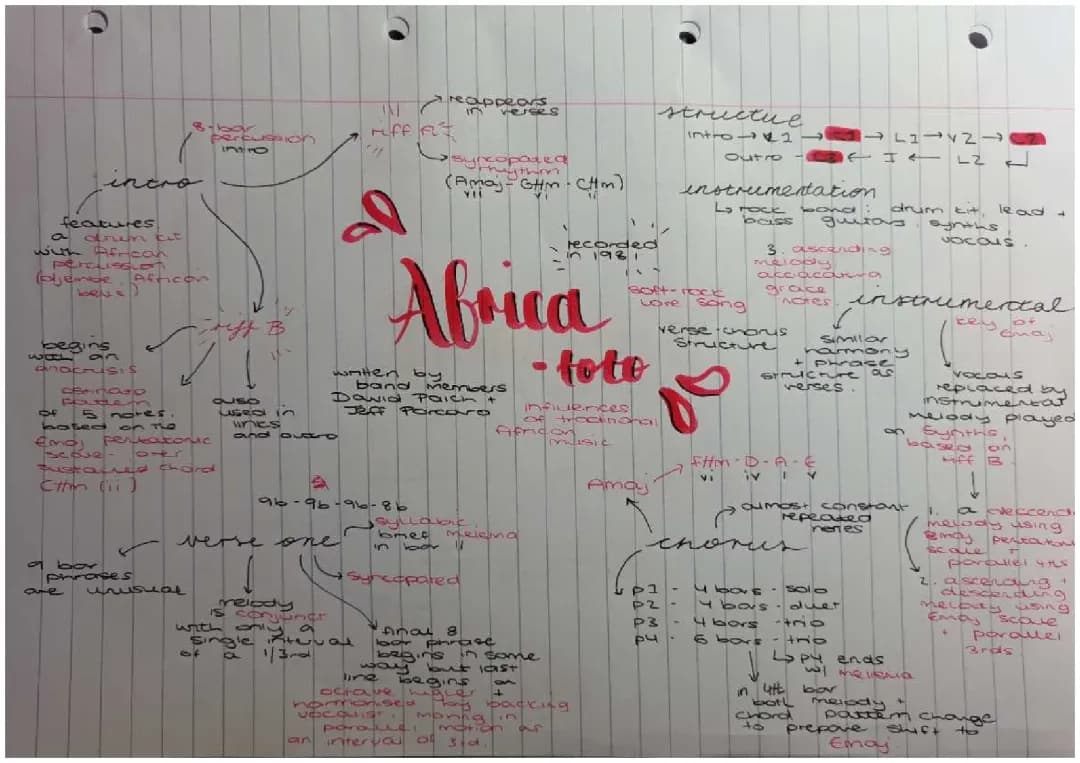 8-bar
percussion
intro
intro
features
a drum kit
with African
percussion
(djembe, African
bells)
riff A:
reappears
in verses
syncopated
rhythm
(Amaj - G#m - C#m)
vii vi ii
riff B
begins
with an
anacrusis
ostinato
pattern
of 5 notes.
based on the
Emaj pentatonic
scale over
sustained chord
C#m (ii)
also
used in
links
and outro
Africa
- toto
recorded
in 1981
soft-rock
love song
verse-chorus
structure
written by
band members
David Paich +
Jeff Porcaro
influences
of traditional
African
music
structure
intro → V1 → C1 → L1 → V2 → C2
outro - C3 ← I ← L2
instrumentation
↳ rock band: drum kit, lead +
bass guitars, synths,
vocals.
3. ascending
melody
acciaccatura
grace
notes.
instrumental
key of
Emaj
similar
harmony
+ phrase
structure as
verses.
vocals
replaced by
instrumental
melody played
on synths,
based on
riff B
1. a descend
melody using
Emaj pentaton
scale +
parallel 4ths
2. ascending +
descending
melody using
Emaj scale
+ parallel
3rds
9b - 9b - 9b - 8b
verse one
9 bar
phrases
are unusual
syllabic,
brief melisma
in bar 11
syncopated
melody
is conjunct
with only a
single interval
of a 1/3rd
final 8
bar phrase
begins in same
way but last
line begins an
octave higher +
harmonised by backing
vocalist, moving in
parallel motion as
an interval of 3rd.
Amaj
F#m - D - A - E
vi iv i v
almost constant
repeated
notes
chorus
p1 - 4 bars - solo
p2 - 4 bars - duet
p3 - 4 bars - trio
p4 - 6 bars - trio
↳ p4 ends
w/ melisma
in 4th bar
both melody +
chord pattern change
to prepare shift to
Emaj.